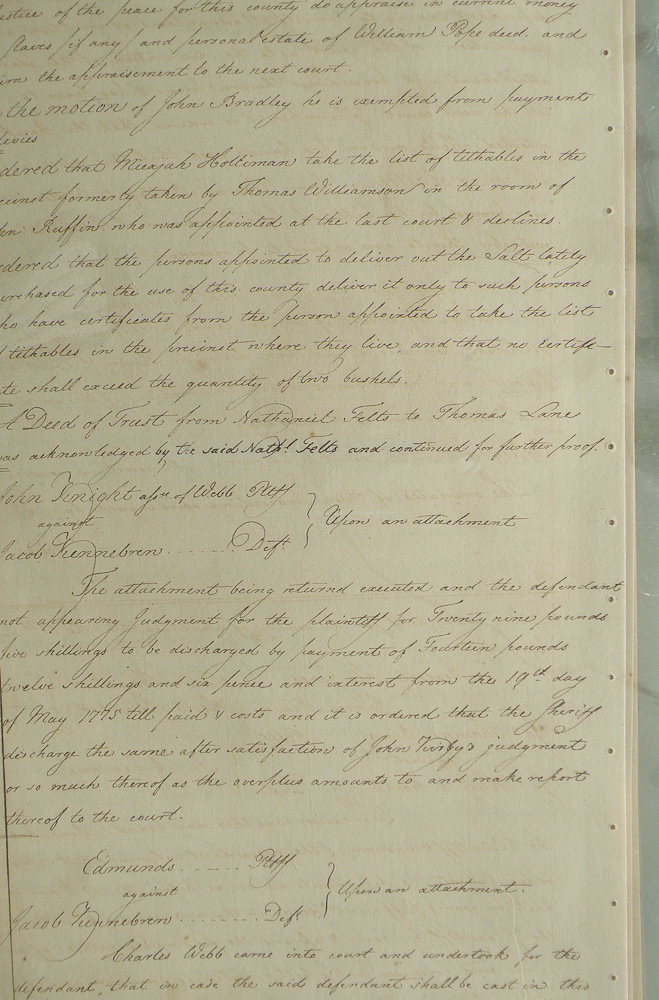 ustice of the peace for this county do appraise in current money
slaves if any and personal estate of William Pope decd. and
urn the appraisement to the next court.
the motion of John Bradley he is exempted from payment
levies
dered that Micajah Holliman take the list of tithables in the
ecinct formerly taken by Thomas Williamson in the room of
hn Ruffin who was appointed at the last court & declines.
dered that the persons appointed to deliver out the Salt lately
urchased for the use of this county deliver it only to such persons
ho have certificates from the person appointed to take the list
tithables in the precinct where they live, and that no certifi-
te shall exceed the quantity of two bushels.
A Deed of Trust from Nathaniel Felts to Thomas Lane
as acknowledged by the said Nathl. Felts and continued for further proof.
John Knight assee. of Webb Pltff
against
Upon an attachment
Jacob Tunnebren ....... Deft.
The attachment being returnd executed and the defendant
not appearing Judgment for the plaintiff for Twenty nine pounds
five shillings to be discharged by payment of Fourteen pounds
twelve shillings and six pence and interest from the 19th day
of May 1775 till paid & costs and it is ordered that the Sheriff
discharge the same after satisfaction of John Kirby's judgment
or so much thereof as the overplus amounts to and make report
thereof to the court.
Edmunds ...... Pltff
against
Upon an attachment.
Jacob Tunnebren ......... Deft
Charles Webb came into court and undertook for the
defendant, that in case the said defendant shall be cast in this